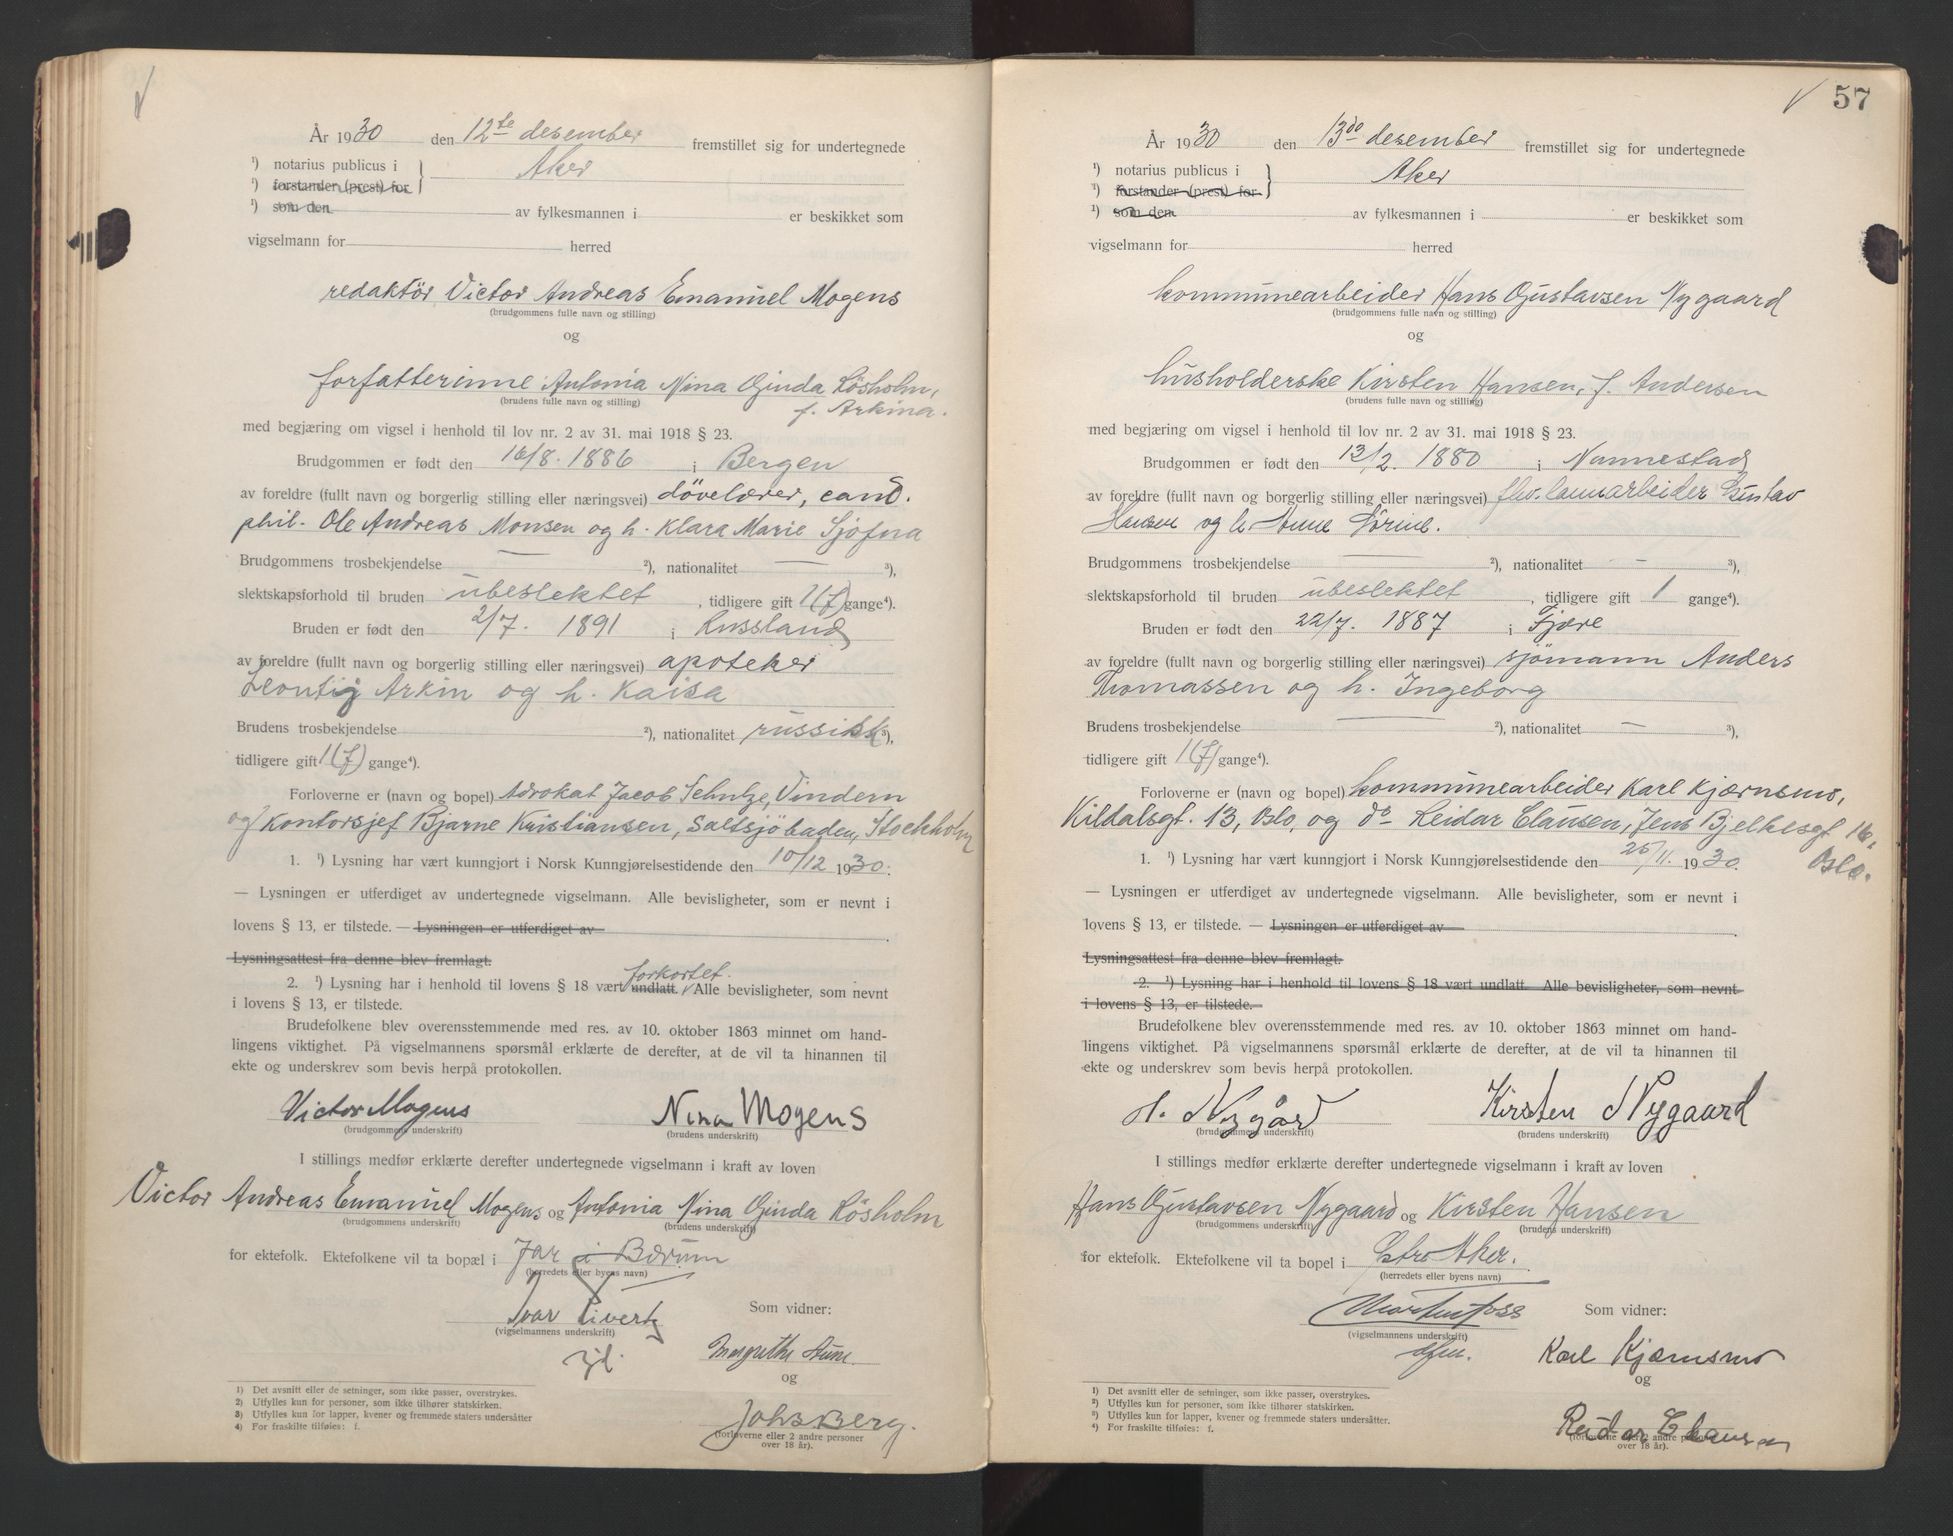 År 1930 den 12te desember fremstillet sig for undertegnede
¹) notarius publicus i } Aker
¹) forstander (prest) for
¹) som den av fylkesmannen i er beskikket som
vigselmann for herred
redaktör Victor Andreas Emanuel Mogens
(brudgommens fulle navn og stilling)
og
forfatterinne Antonia Nina Ginda Lösholm,
(brudens fulle navn og stilling)
f. Arkina.
med begjæring om vigsel i henhold til lov nr. 2 av 31. mai 1918 § 23.
Brudgommen er født den 16/8. 1886 i Bergen
av foreldre (fullt navn og borgerlig stilling eller næringsvei) dövelærer, cand.
phil. Ole Andreas Monsen og h. Klara Marie Sjöfna
Brudgommens trosbekjendelse — ²), nationalitet — ³),
slektskapsforhold til bruden ubeslektet, tidligere gift 1(f) gange⁴).
Bruden er født den 2/7. 1891 i Russland
av foreldre (fullt navn og borgerlig stilling eller næringsvei) apoteker
Leontij Arkin og h. Kaisa
Brudens trosbekjendelse ²), nationalitet russisk ³),
tidligere gift 1(f) gange⁴).
Forloverne er (navn og bopel) Advokat Jacob Schulze, Vindern
og Kontorsjef Bjarne Kristiansen, Saltsjöbaden, Stockholm
1. ¹) Lysning har vært kunngjort i Norsk Kunngjørelsestidende den 10/12 1930.
— Lysningen er utferdiget av undertegnede vigselmann. Alle bevisligheter, som er nevnt i
lovens § 13, er tilstede. — Lysningen er utferdiget av
Lysningsattest fra denne blev fremlagt.
forkortet.
2. ¹) Lysning har i henhold til lovens § 18 vært undlatt. Alle bevisligheter, som nevnt
i lovens § 13, er tilstede.
Brudefolkene blev overensstemmende med res. av 10. oktober 1863 minnet om hand-
lingens viktighet. På vigselmannens spørsmål erklærte de derefter, at de vil ta hinannen til
ekte og underskrev som bevis herpå protokollen.
Victor Mogens Nina Mogens
(brudgommens underskrift) (brudens underskrift)
I stillings medfør erklærte derefter undertegnede vigselmann i kraft av loven
Victor Andreas Emanuel Mogens og Antonia Nina Ginda Lösholm
(brudgommens underskrift) (brudens underskrift)
for ektefolk. Ektefolkene vil ta bopæl i Jar i Bærum
(herredets eller byens navn)
Ivar Sivertz Som vidner:
(vigselmannens underskrift)
Margrethe Aune
og
Johs Berg.
(forloverne eller 2 andre personer
over 18 år).
¹) Det avsnitt eller de setninger, som ikke passer, overstrykes.
²) Utfylles kun for personer, som ikke tilhører statskirken.
³) Utfylles kun for lapper, kvener og fremmede staters undersåtter
⁴) For fraskilte tilføies: f.
57
År 1930 den 13do desember fremstillet sig for undertegnede
¹) notarius publicus i } Aker
¹) forstander (prest) for
¹) som den av fylkesmannen i er beskikket som
vigselmann for herred
kommunearbeider Hans Gustavsen Nygaard
(brudgommens fulle navn og stilling)
og
husholderske Kirsten Hansen, f. Andersen
(brudens fulle navn og stilling)
med begjæring om vigsel i henhold til lov nr. 2 av 31. mai 1918 § 23.
Brudgommen er født den 13/2. 1880 i Nannestad
av foreldre (fullt navn og borgerlig stilling eller næringsvei) Gustav
Hansen og h. Anne Sörine.
Brudgommens trosbekjendelse — ²), nationalitet — ³),
slektskapsforhold til bruden ubeslektet, tidligere gift 1 gange⁴).
Bruden er født den 22/7. 1887 i Fjære
av foreldre (fullt navn og borgerlig stilling eller næringsvei) sjömann Anders
Thomassen og h. Ingeborg
Brudens trosbekjendelse — ²), nationalitet — ³),
tidligere gift 1(f) gange⁴).
Forloverne er (navn og bopel) kommunearbeider Karl Kjærnsmo,
Kildalsgt. 13, Oslo, og do Reidar Clausen, Jens Bjelkesgt 16,
Oslo.
1. ¹) Lysning har vært kunngjort i Norsk Kunngjørelsestidende den 25/11. 1930.
— Lysningen er utferdiget av undertegnede vigselmann. Alle bevisligheter, som er nevnt i
lovens § 13, er tilstede. — Lysningen er utferdiget av
Lysningsattest fra denne blev fremlagt.
2. ¹) Lysning har i henhold til lovens § 18 vært undlatt. Alle bevisligheter, som nevnt
i lovens § 13, er tilstede.
Brudefolkene blev overensstemmende med res. av 10. oktober 1863 minnet om hand-
lingens viktighet. På vigselmannens spørsmål erklærte de derefter, at de vil ta hinannen til
ekte og underskrev som bevis herpå protokollen.
H. Nygård Kirsten Nygaard
(brudgommens underskrift) (brudens underskrift)
I stillings medfør erklærte derefter undertegnede vigselmann i kraft av loven
Hans Gustavsen Nygaard og Kirsten Hansen
(brudgommens underskrift) (brudens underskrift)
for ektefolk. Ektefolkene vil ta bopel i Östre Aker.
(herredets eller byens navn)
Som vidner:
(vigselmannens underskrift)
Karl Kjærnsmo
og
Reidar Clausen
(forloverne eller 2 andre personer
over 18 år).
¹) Det avsnitt eller de setninger, som ikke passer, overstrykes.
²) Utfylles kun for personer, som ikke tilhører statskirken.
³) Utfylles kun for lapper, kvener og fremmede staters undersåtter.
⁴) For fraskilte tilføies: f.